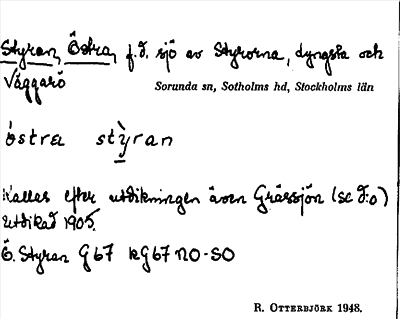 Styran, Östra, f.d. sjö av Styrorna, Lyngsta och
Väggarö
Sorunda sn, Sotholms hd, Stockholms län
östra stỳran
Kallas efter utdikningen även Grässjön (se d:o)
Utdikad 1905.
Ö. Styran G67 kG67 NO-SO
R. OTTERBJÖRK 1948.